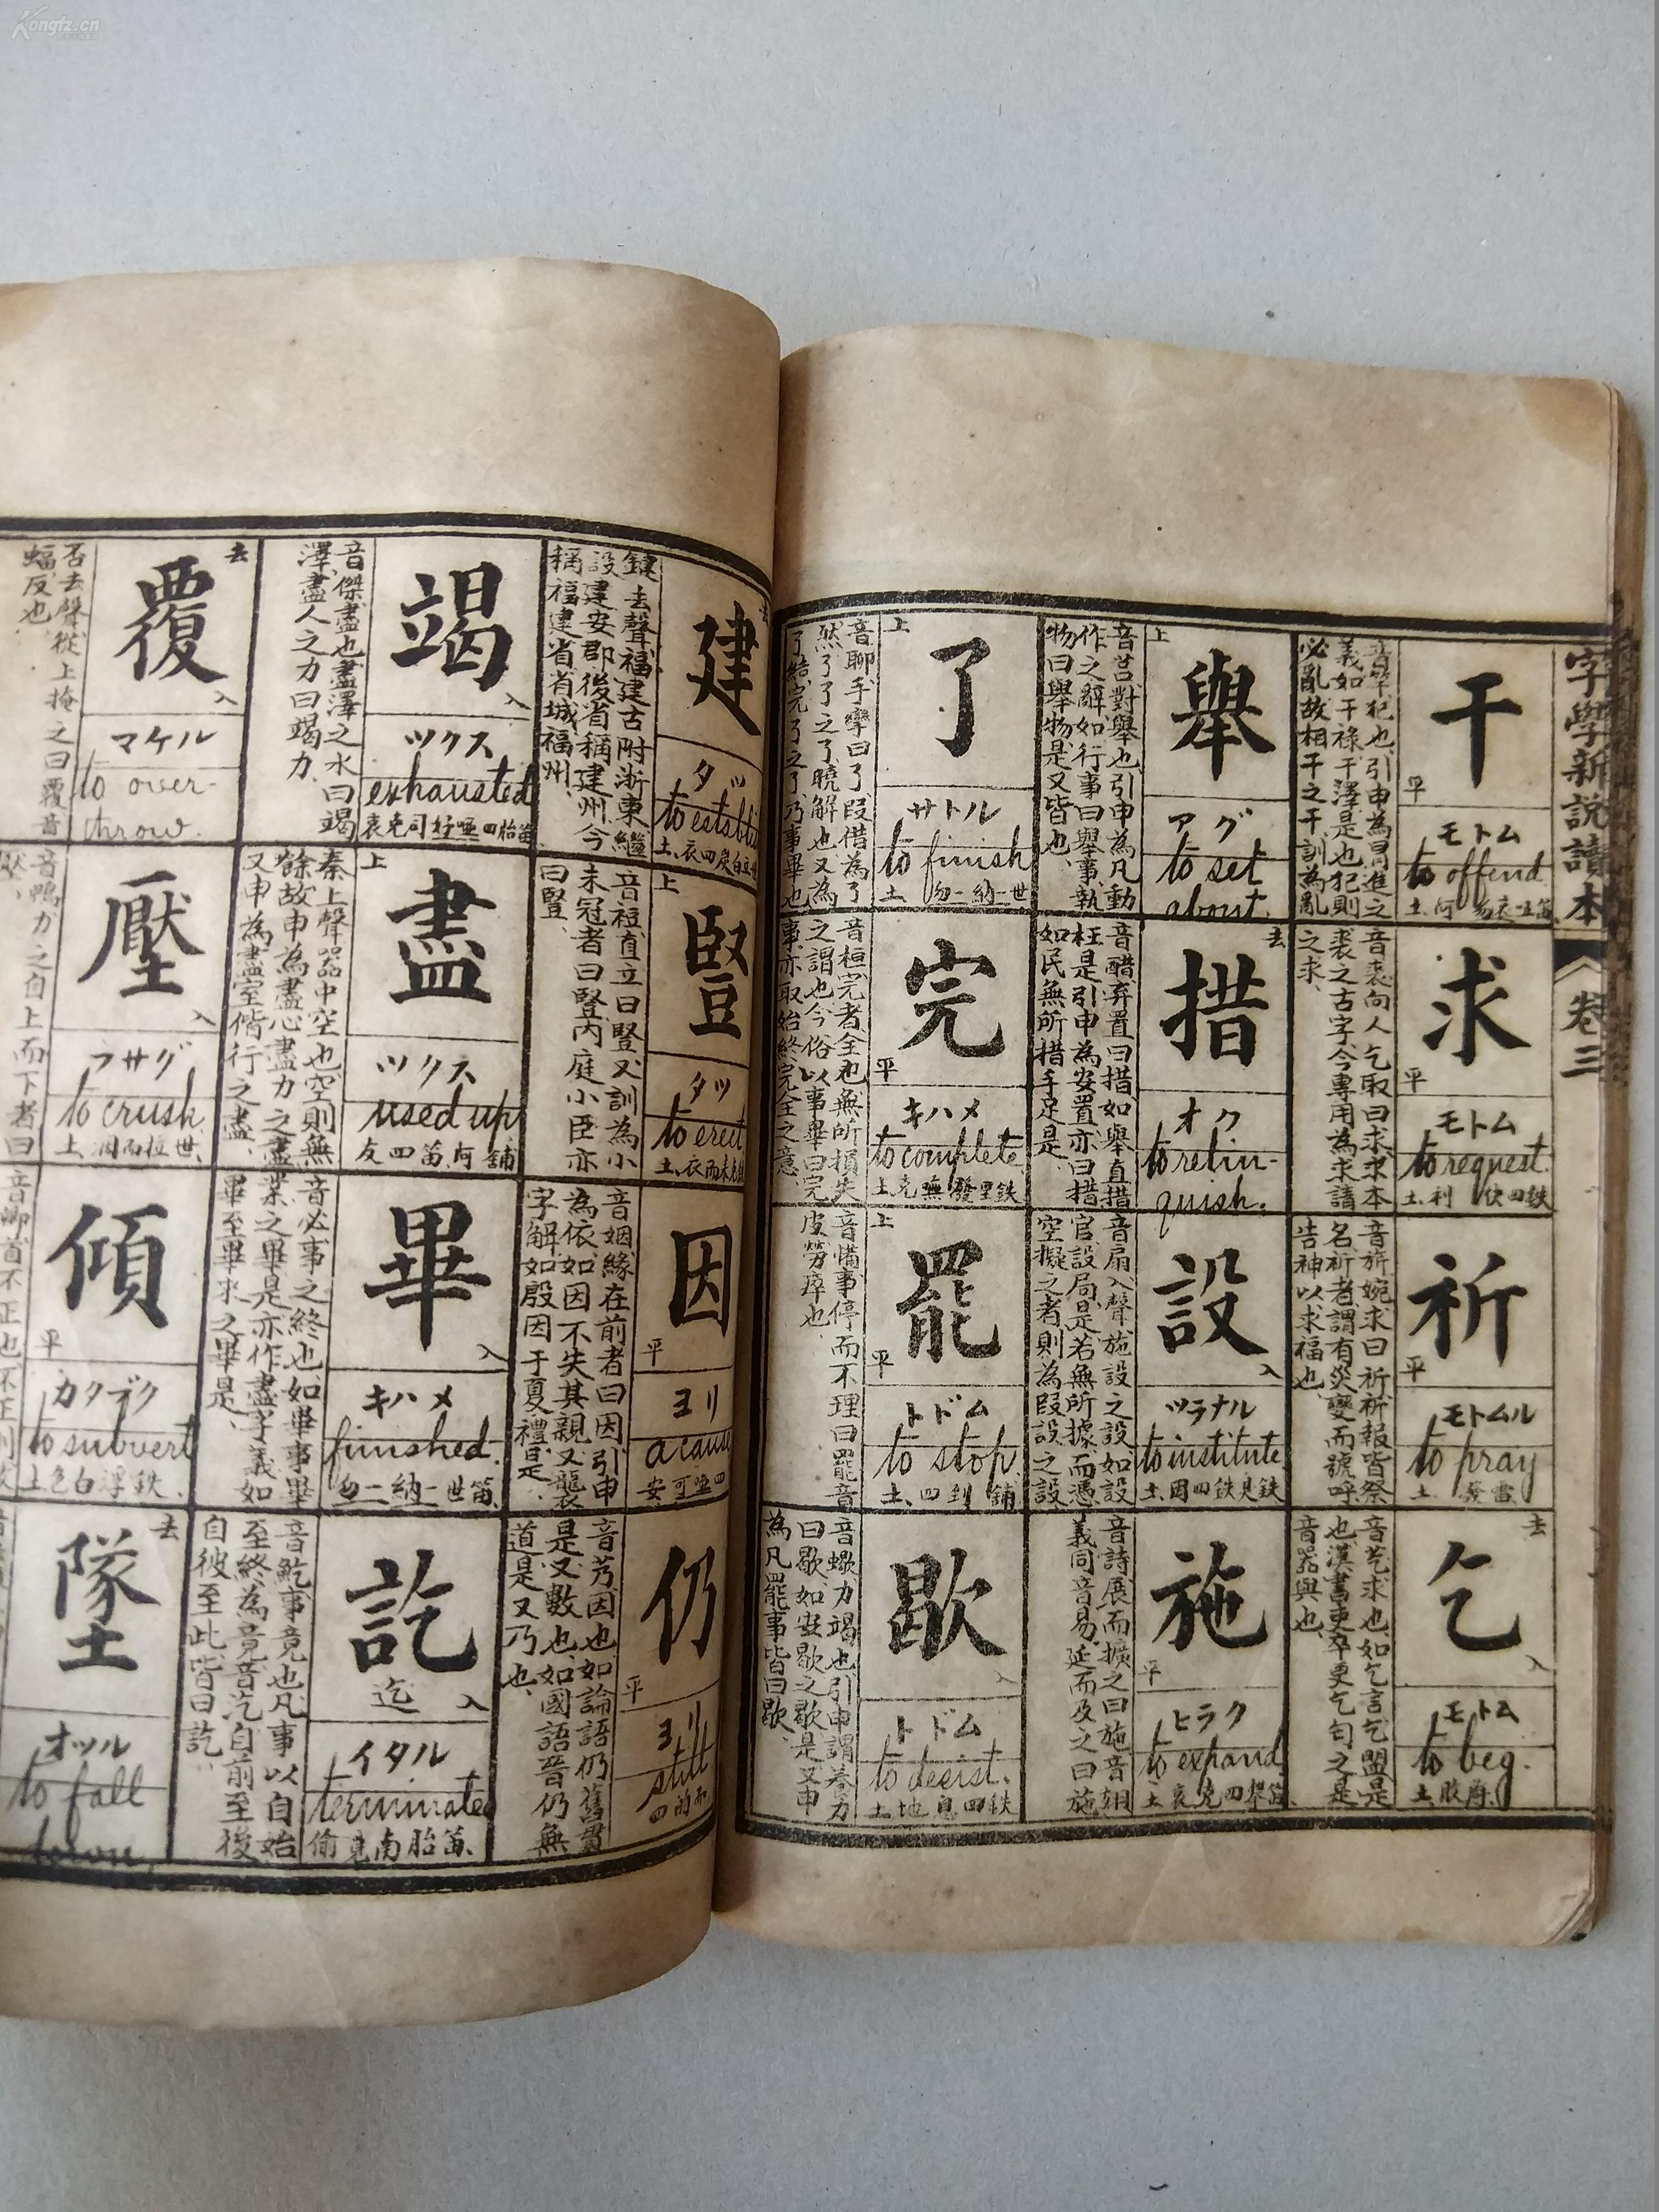 Kongfz.cn
字學新說讀本
卷三
干
平
モトム
to offend
義如干祿干澤是也犯則
必亂故相干之干訓為亂
求
平
モトム
to request.
音裘向人乞取曰求求本
裘之古字今專用為求請
之求
祈
平
モトムル
to pray
音旂婉求曰祈祈報皆祭
名祈者謂有災變而號呼
告神以求福也
去
乞
入
モトム
to beg.
上
舉
アグ
to set
about.
音莒對舉也引申為凡動
作之辭如行事曰舉事執
物曰舉物是又皆也
去
措
オク
to relin-
quish.
音醋弃置曰措如舉直措
枉是引申為安置亦曰措
如民無所措手足是
設
入
ツラナル
to institute
音扇入聲施設之設如設
官設局是若無所據而憑
空擬之者則為叚設之設
施
平
ヒラク
to expand
音詩展而擴之曰施音翅
義同音易延而及之曰施
上
了
サトル
to finish
音聊手攣曰了叚借為了
然了了之了曉解也又為
了結完了之了乃事畢也
完
平
キハメ
to complete
音桓完者全也無所損失
之謂也今俗以事畢曰完
事亦取始終完全之意
上
罷
平
トドム
to stop.
音憊事停而不理曰罷音
皮勞瘁也
歇
入
トドム
to desist.
曰歇如安歇之歇是又申
為凡罷事皆曰歇
去
建
タツ
鍵去聲福建古附浙東繼
設建安郡後省稱建州今
稱福建省省城福州
上
豎
タツ
to erect
音裋直立曰豎又訓為小
未冠者曰豎內庭小臣亦
曰豎
因
平
ヨリ
a cause
音姻緣在前者曰因引申
為依如因不失其親又襲
字解如殷因于夏禮是
仍
平
ヨリ
still
音艿因也如論語仍舊貫
是又數也如國語晉仍無
道是又乃也
竭
入
ツクス
exhausted
音傑盡也盡澤之水曰竭
澤盡人之力曰竭力
上
盡
ツクス
used up
秦上聲器中空也空則無
餘故申為盡心盡力之盡
又申為盡室偕行之盡
畢
入
キハメ
finished.
音必事之終也如畢事畢
業之畢是亦作盡字義如
畢至畢求之畢是
訖
迄
入
イタル
terminated
音釳事竟也凡事以自始
至終為竟音汔自前至後
自彼至此皆曰訖
去
覆
入
マケル
to over-
throw.
否去聲從上掩之曰覆音
蝠反也
壓
入
フサグ
to crush
音鴨力之自上而下者曰
傾
平
カタブク
to subvert
去
隊
土
オツル
to fall
down.